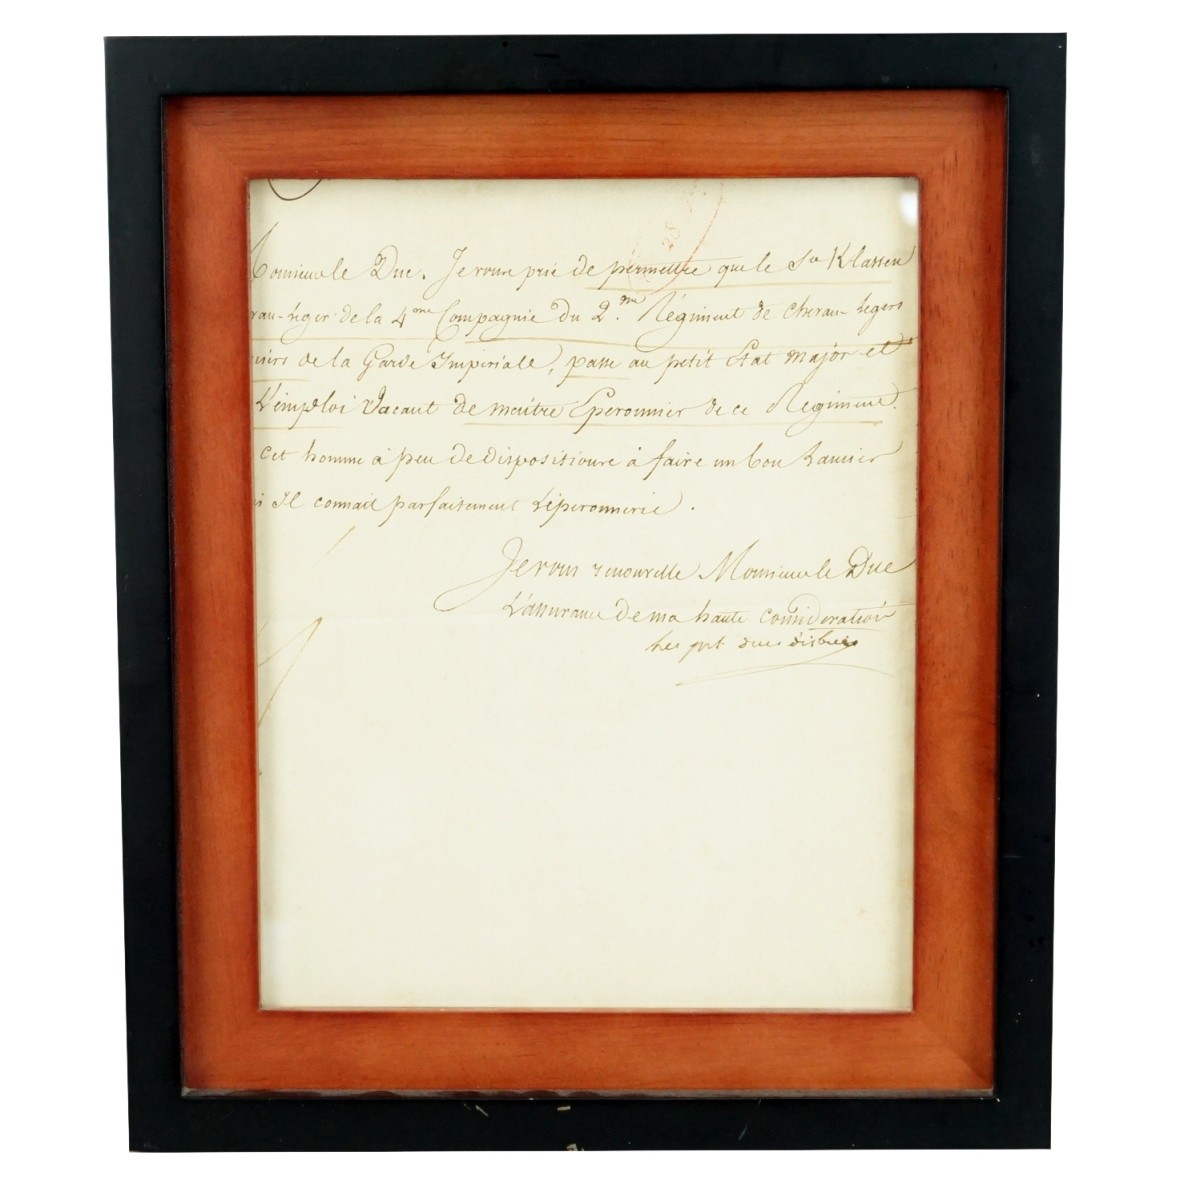 Monsieur le Duc. Je vous prie de permettre que le Sr Klassen
vau-Leger de la 4me Compagnie du 2.me Régiment de chevau-Legers
ciers de la Garde Impériale, passe au petit Etat major et
L'emploi Vacant de maître Eperonnier de ce Régiment.
cet homme à peu de dispositions à faire un bon Lancier
Il connait parfaitement L'éperonnerie.
Je vous renouvelle Monsieur le Duc
L'assurance de ma haute considération
28